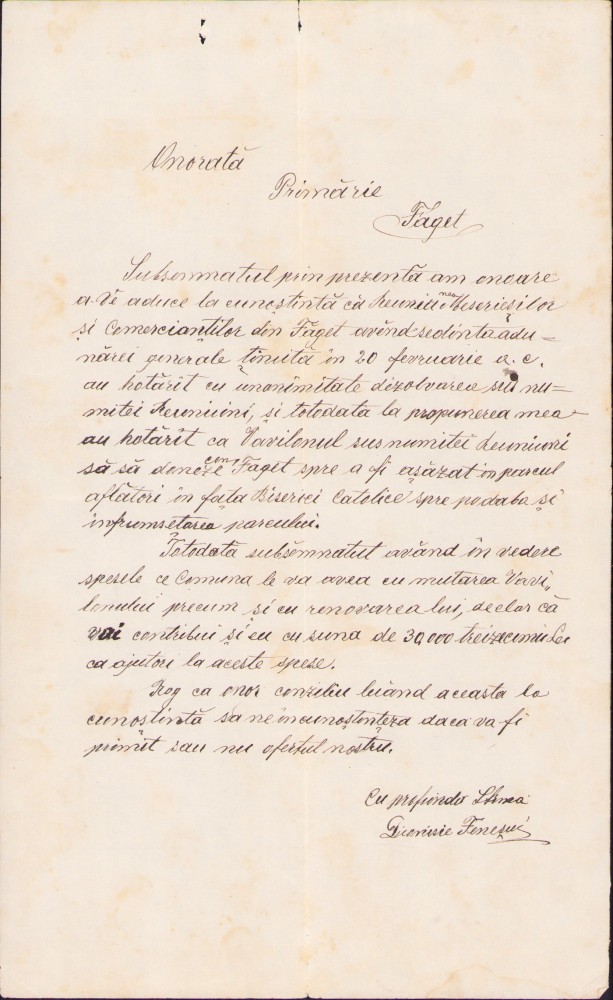 Onorată
Primărie
Făget
Subsemnatul prin prezentă am onoare
a Vĕ aduce la cunoștintă că Reuniunea Meserieșilor
și Comercianților din Făget avînd sedinta adu=
nărei generale ținută în 20 fevruarie a. c.
au hotărît cu unonimitate dizolvarea sus nu=
mitei Reuniuni, și totodata la propunerea mea
au hotărît ca Vavilonul susnumitei Reuniuni
să să doneze com. Făget spre a fi așăzat in parcul
aflători in fața Biserici Catolice spre podaba și
infrumsetarea parcului.
Totodată subsemnatul avănd în vedere
spesele ce Comuna le va avea cu mutarea Vavi„
lonului precum și cu renovarea lui, declar că
voi contribui și eu cu suna de 30,000 treizecimii Lei
ca ajutori la aceste spese.
Rog ca onor conziliu luănd aceasta la
cunoștintă sa ne incunoștinteza daca va fi
primit sau nu ofertul nostru.
Cu profundo Stima
Dionisie